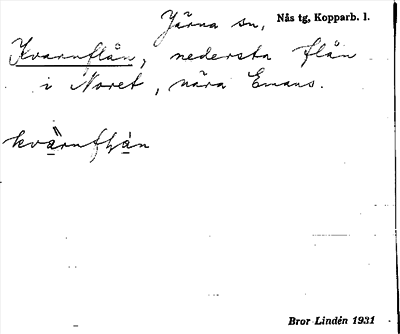 Järna sn, Nås tg, Kopparb. l.
Kvarnflån, nedersta flån
i Noret, nära Emans.
Bror Lindén 1931